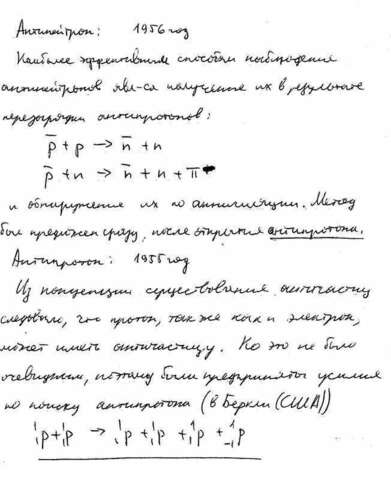 Антинейтрон: 1956 год
Наиболее эффективным способом наблюдения
антинейтронов явл-ся получение их в результате
перезарядки антипротонов:
p̅ + p → n̅ + n
p̅ + n → n̅ + n + π⁻
и обнаружение их по аннигиляции. Метод
был предложен сразу, после открытия антипротона.
Антипротон: 1955 год
Из концепции существования античастиц
следовало, что протон, так же как и электрон,
может иметь античастицу. Но это не было
очевидным, поэтому были предприняты усилия
по поиску антипротона (в Беркли (США))
¹₁p + ¹₁p → ¹₁p + ¹₁p + ¹₁p + ¹₋₁p